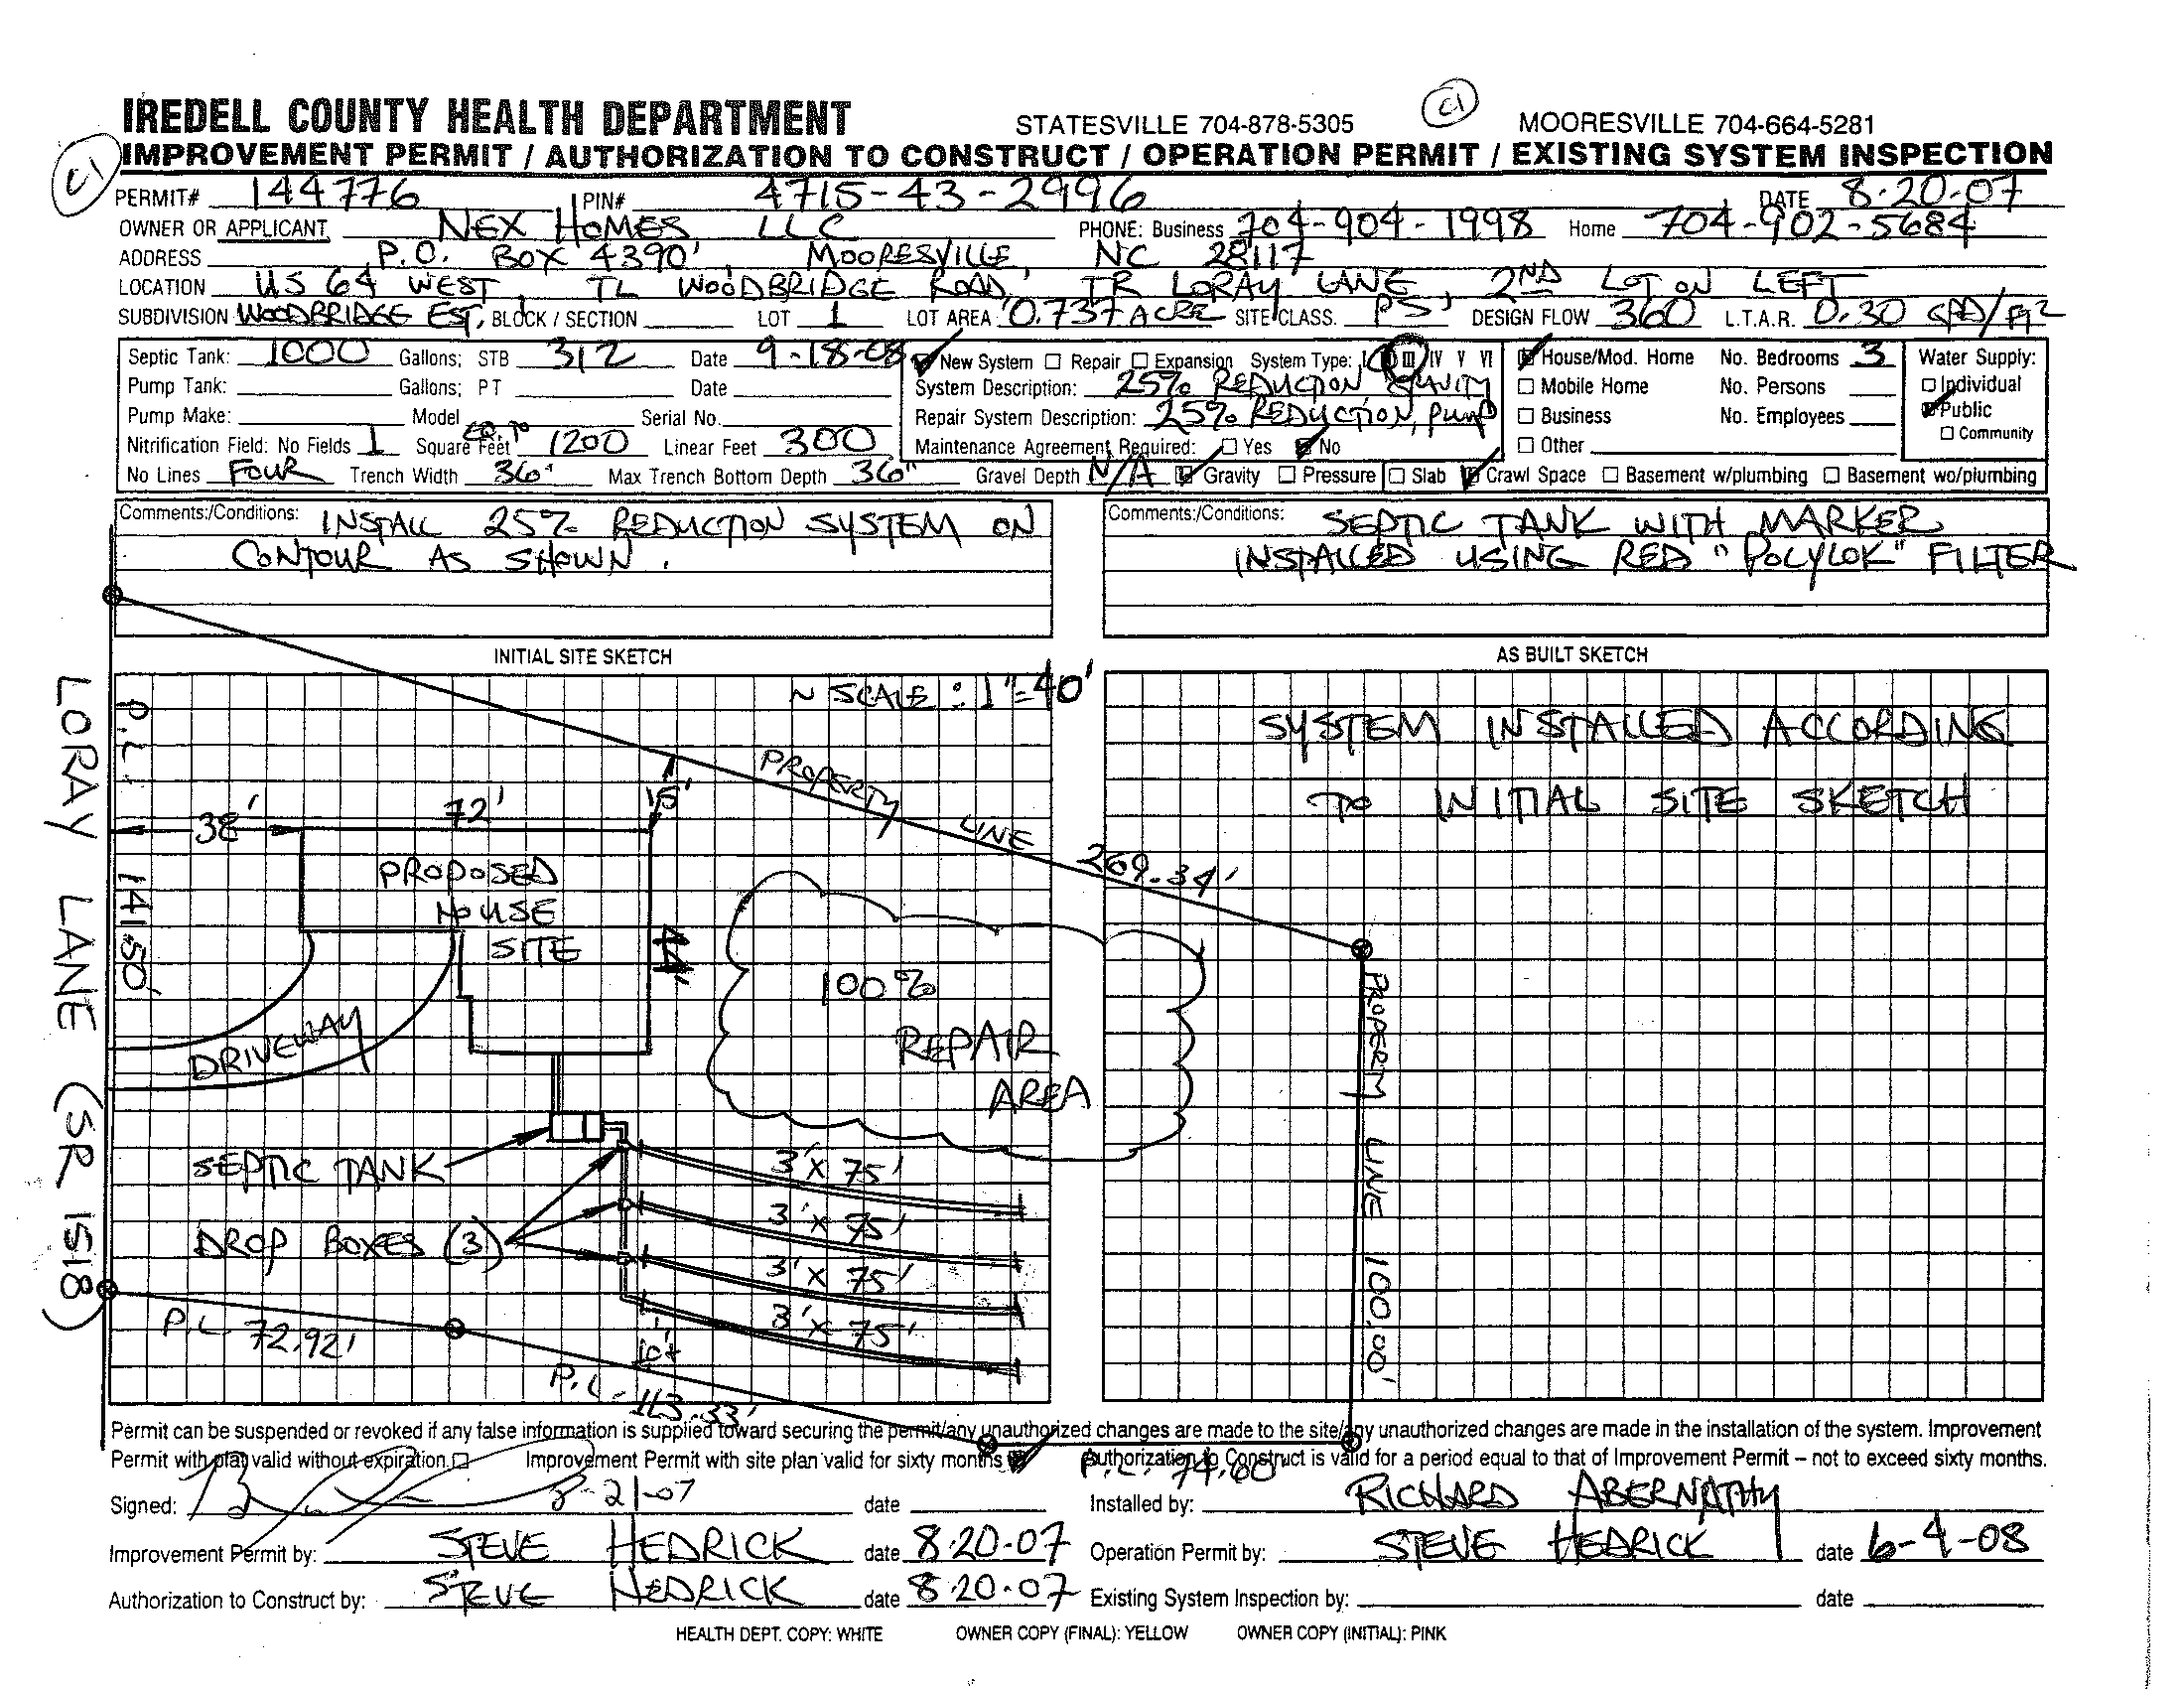 IREDELL COUNTY HEALTH DEPARTMENT STATESVILLE 704-878-5305 MOORESVILLE 704-664-5281
IMPROVEMENT PERMIT / AUTHORIZATION TO CONSTRUCT / OPERATION PERMIT / EXISTING SYSTEM INSPECTION
PERMIT# 144776 PIN# 4715-43-2996 DATE 8-20-07
OWNER OR APPLICANT NEX HOMES LLC PHONE: Business 704-904-1998 Home 704-902-5684
ADDRESS P.O. BOX 4390, MOORESVILLE, NC 28117
LOCATION US 64 WEST, TL WOODBRIDGE ROAD, TR LORAY LANE, 2ND LOT ON LEFT
SUBDIVISION WOODBRIDGE EST. BLOCK / SECTION LOT 1 LOT AREA 0.737 ACRE SITE CLASS. PS DESIGN FLOW 360 L.T.A.R. 0.30 GPD/FT2
Septic Tank: 1000 Gallons; STB 312 Date 9-18-08 New System Repair Expansion System Type: I II III IV V VI House/Mod. Home No. Bedrooms 3 Water Supply:
Pump Tank: Gallons; PT Date System Description: 25% REDUCTION GRAVITY Mobile Home No. Persons Individual
Pump Make: Model Serial No. Repair System Description: 25% REDUCTION, PUMP Business No. Employees Public
Nitrification Field: No Fields 1 Square Feet EQ. TO 1200 Linear Feet 300 Maintenance Agreement Required: Yes No Other Community
No Lines FOUR Trench Width 36" Max Trench Bottom Depth 36" Gravel Depth N/A Gravity Pressure Slab Crawl Space Basement w/plumbing Basement wo/plumbing
Comments:/Conditions: INSTALL 25% REDUCTION SYSTEM ON
CONTOUR AS SHOWN.
Comments:/Conditions: SEPTIC TANK WITH MARKER
INSTALLED USING RED "POLYLOK" FILTER
INITIAL SITE SKETCH
~ SCALE: 1"=40'
LORAY LANE (SR 1518)
P.L. 141.50'
PROPERTY LINE 269.34'
38'
72'
15'
PROPOSED
HOUSE
SITE
44'
100%
REPAIR
AREA
DRIVEWAY
SEPTIC TANK
3' X 75'
3' X 75'
DROP BOXES (3)
3' X 75'
3' X 75'
P.L 72.92'
10'
P.L. 113.33'
AS BUILT SKETCH
SYSTEM INSTALLED ACCORDING
TO INITIAL SITE SKETCH
PROPERTY LINE 100.00'
Permit can be suspended or revoked if any false information is supplied toward securing the permit/any unauthorized changes are made to the site/any unauthorized changes are made in the installation of the system. Improvement
Permit with play valid without expiration. Improvement Permit with site plan valid for sixty months Authorization to Construct is valid for a period equal to that of Improvement Permit – not to exceed sixty months.
P.L. 74.60
Signed: 8-21-07 date Installed by: RICHARD ABERNATHY
Improvement Permit by: STEVE HEDRICK date 8-20-07 Operation Permit by: STEVE HEDRICK date 6-4-08
Authorization to Construct by: STEVE HEDRICK date 8-20-07 Existing System Inspection by: date
HEALTH DEPT. COPY: WHITE OWNER COPY (FINAL): YELLOW OWNER COPY (INITIAL): PINK